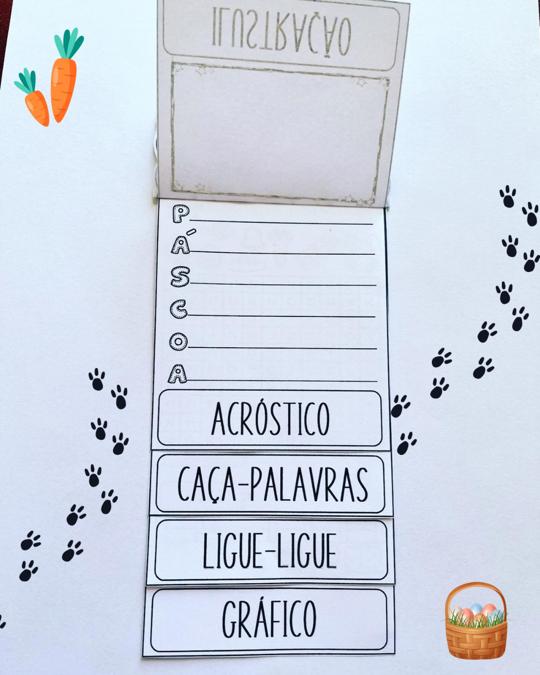 ILUSTRAÇÃO
P
Á
S
C
O
A
ACRÓSTICO
CAÇA-PALAVRAS
LIGUE-LIGUE
GRÁFICO